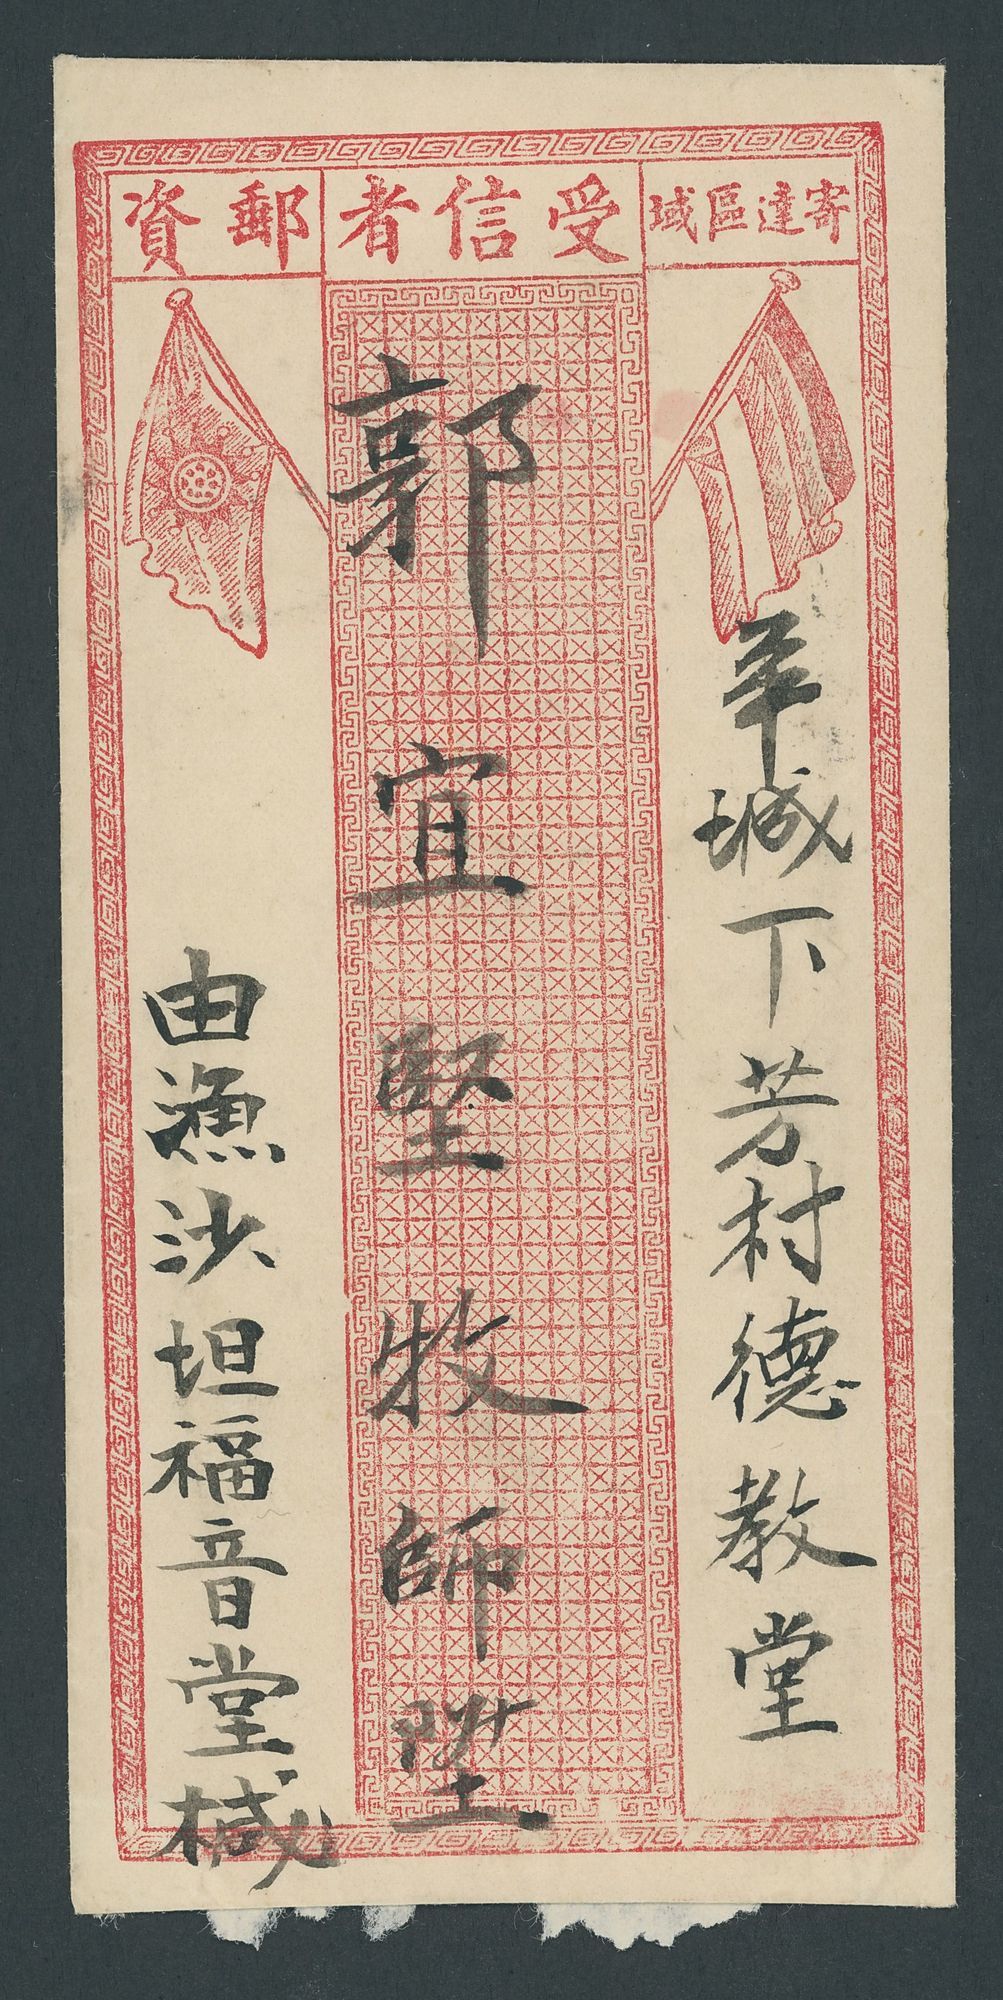 寄達區域
受信者
郵資
羊城下芳村德教堂
郭宜堅牧師陞
由漁沙坦福音堂椷